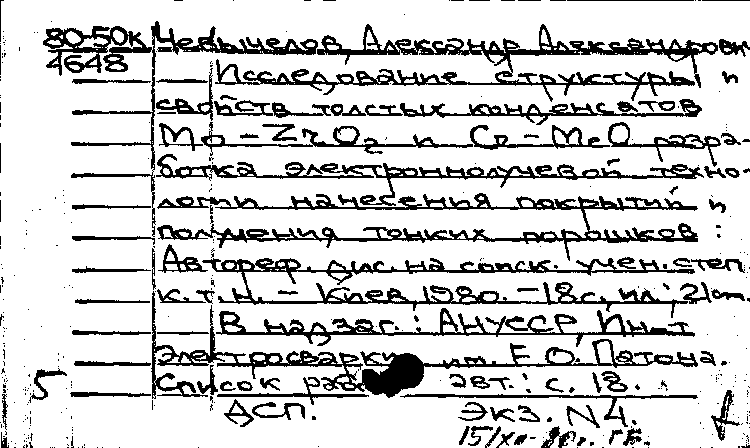 80-50к Чевычелов, Александр Александрович
4648
Исследование структуры и
свойств толстых конденсатов
Mo-ZrO2 и Cr-MeO разра-
ботка электроннолучевой техно-
логии нанесения покрытий и
получения тонких порошков:
Автореф. дис. на соиск. учен. степ.
к.т.н. - Киев, 1980. - 18с., ил.; 21см.
В надзаг.: АН УССР, Ин-т
электросварки им. Е.О. Патона.
5 Список работ авт.: с. 18.
ДСП. Экз. N4.
15/XII-80г. ГБ.